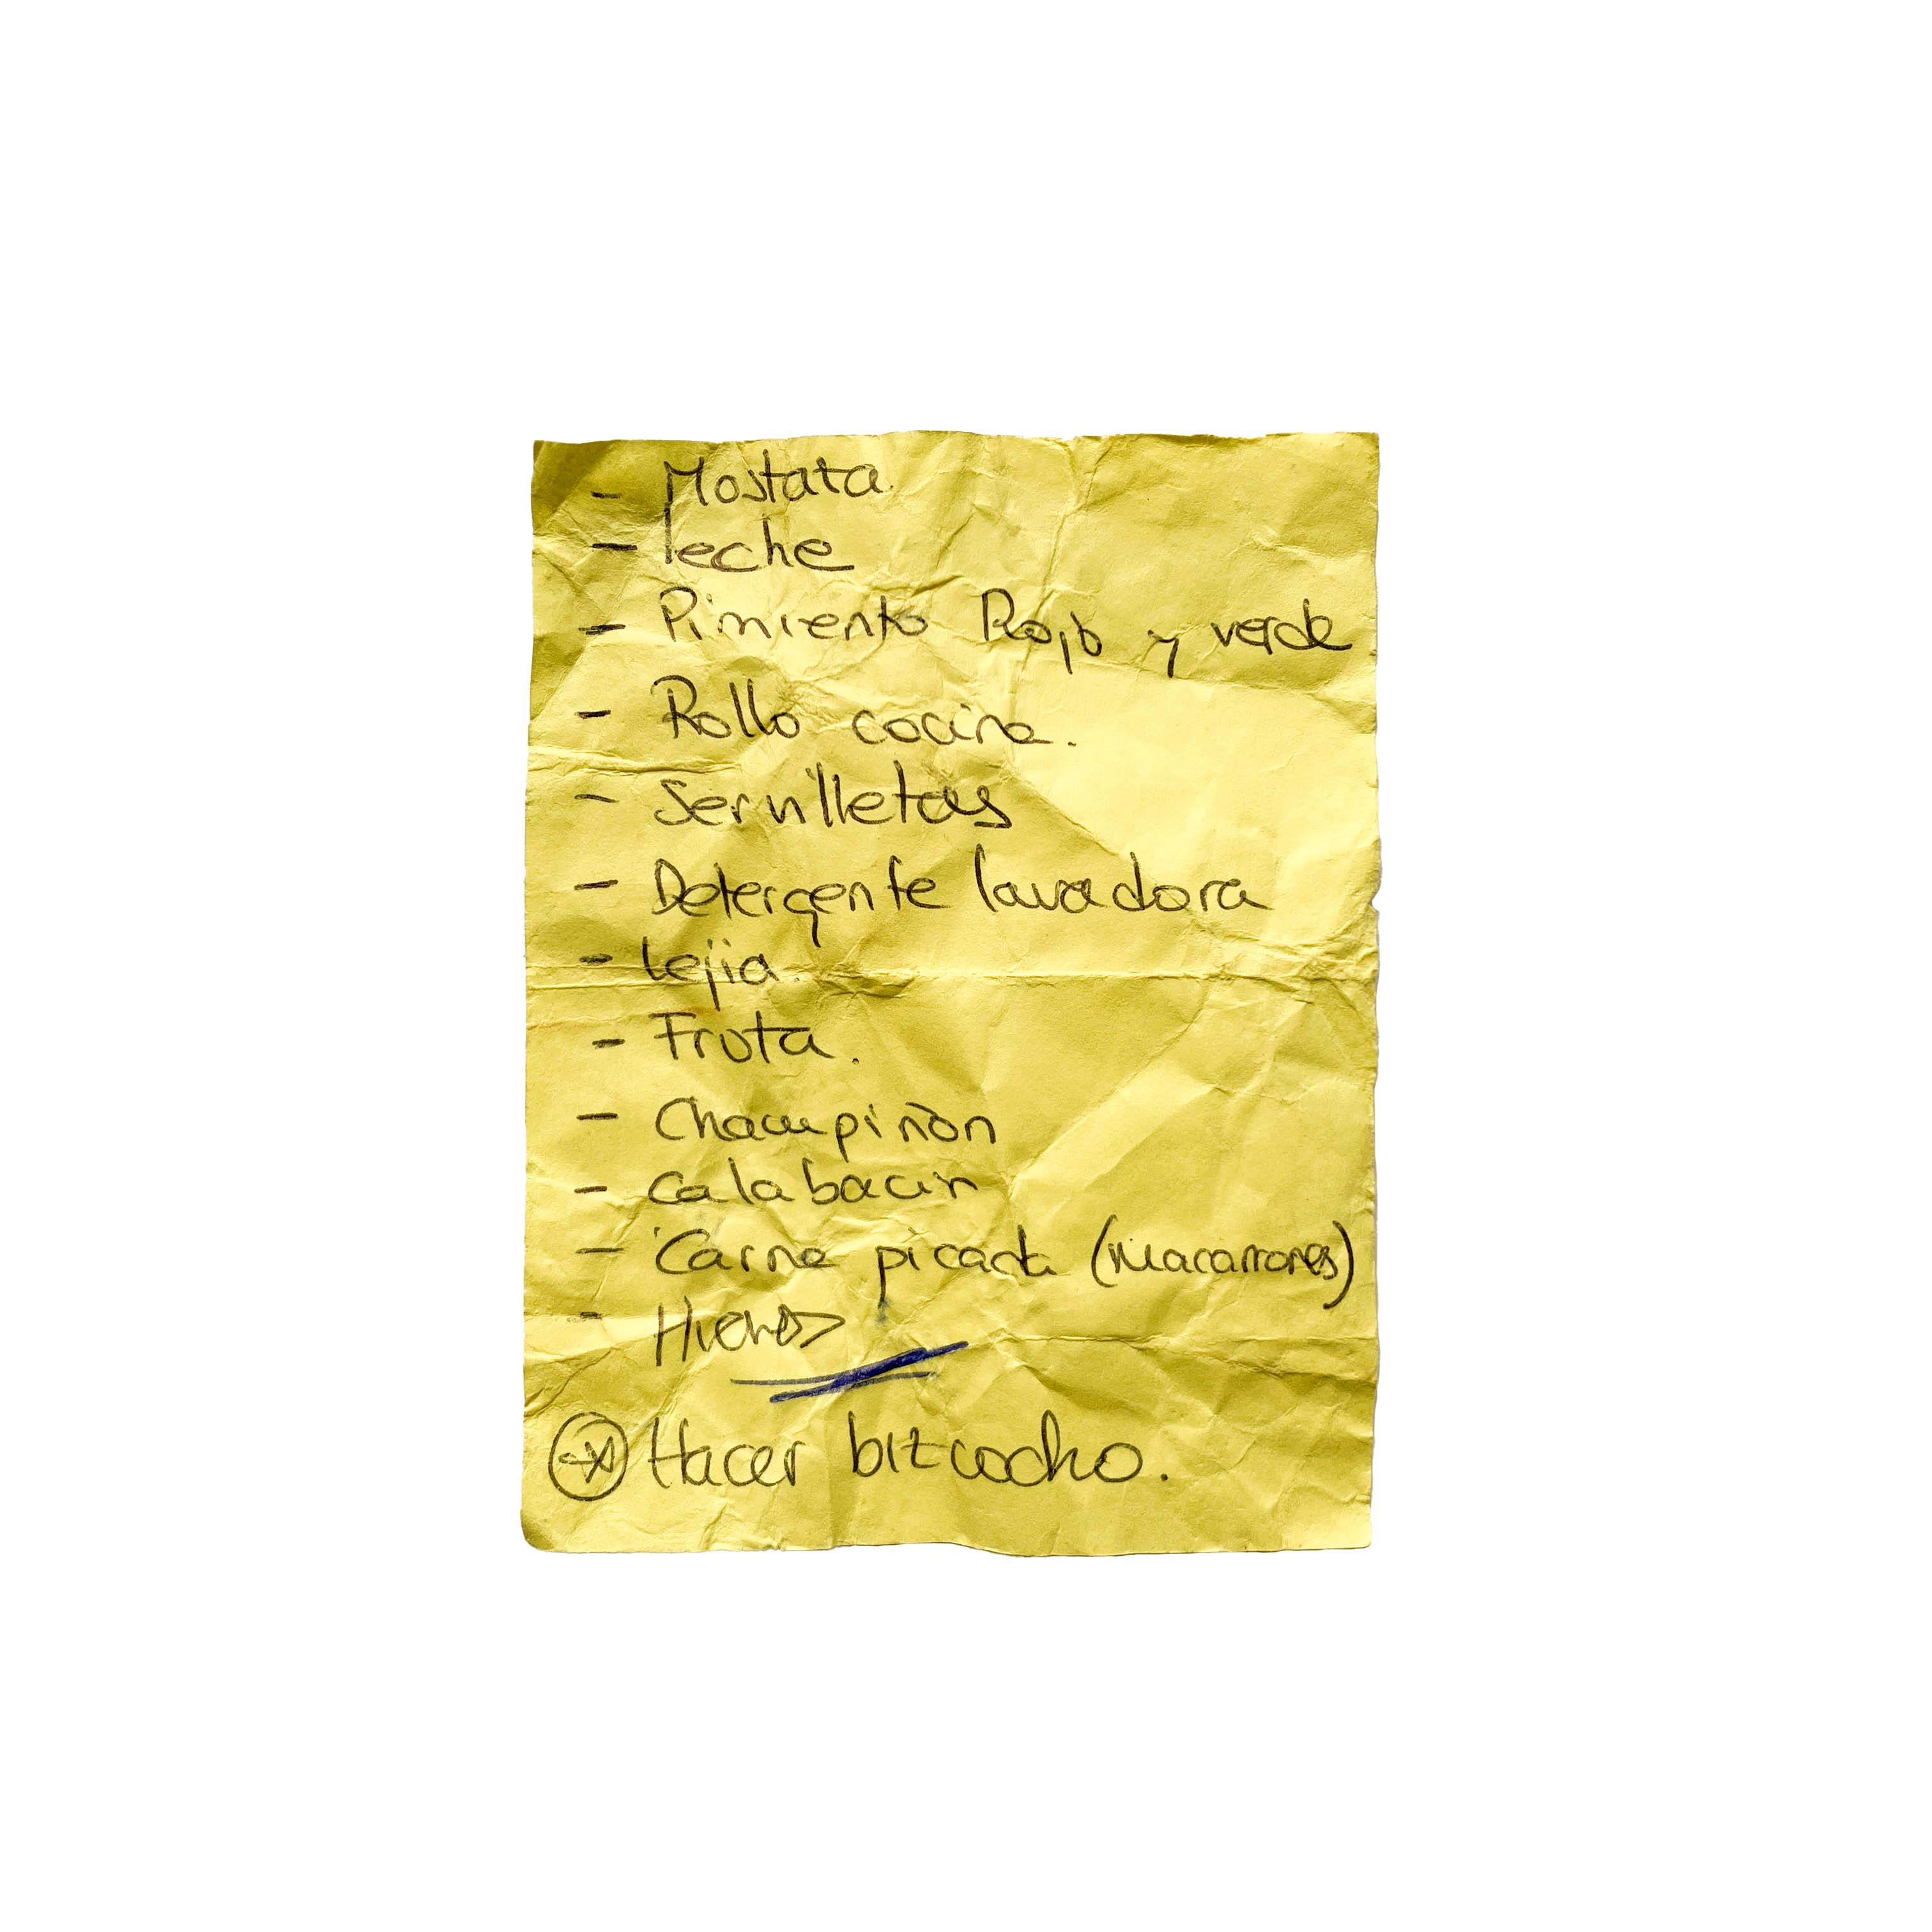 - Mostata.
- leche
- Pimiento Rojo y verde
- Rollo cocina.
- Servilletas
- Detergente lavadora
- Lejia.
- Fruta.
- Champiñón
- Calabacin
- Carne picada (macarrones)
-
Hacer bizcocho.